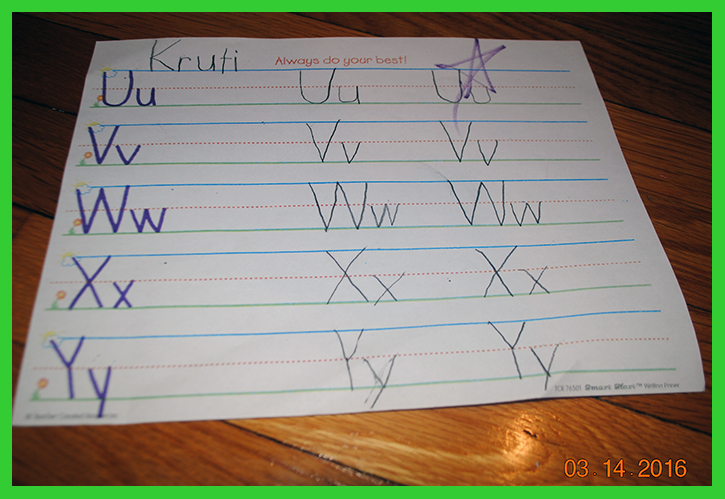 Kruti
Always do your best!
Uu Uu Uu
Vv Vv Vv
Ww Ww Ww
Xx Xx Xx
Yy Yy Yy
TCR 76501 Smart Start™ Writing Paper
© Teacher Created Resources
03.14.2016